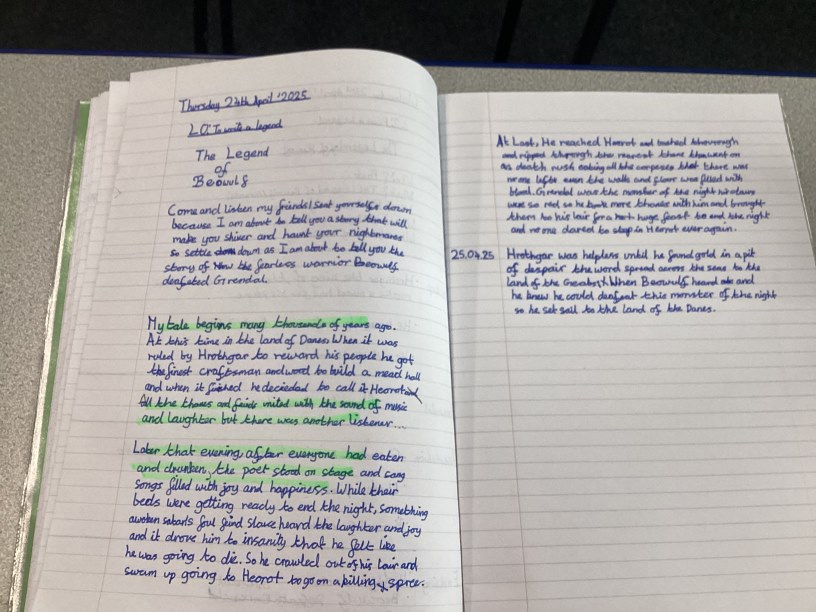 Thursday 24th April 2025
LO: To write a legend
The Legend
of
Beowulf
Come and listen my friends! Seat yourselfs down
because I am about to tell you a story that will
make you shiver and haunt your nightmares
so settle down as I am about to tell you the
story of How the fearless warrior Beowulf
deafated Grendal.
My tale begins many thousands of years ago.
At this time in the land of Danes When it was
ruled by Hrothgar to reward his people he got
the finest craftsman and wood to build a mead hall
and when it finished he decieded to call it Heorot
All the thanes and united with the sound of music
and laughter but there was another listener...
Later that evening after everyone had eaten
and drunken, the poet stood on stage and sang
songs filled with joy and happiness. While their
beds were getting ready to end the night, something
awoken slave heard the laughter and joy
and it drove him to insanity that he felt like
he was going to die. So he crawled out of his lair and
swam up going to Heorot to go on a killing spree.
At Last, He reached Heorot and
and ripped through the nearest thane
as death rush eating all the corpses that there was
no one lefts even the walls and floor was filled with
blood. Grendal was the monster of the night
were so red so he took more thanes with him and brought
them to his lair for a huge feast to end the night
and no one dared to sleep in Heorot ever again.
25.04.25 Hrothgar was helpless until he found gold in a pit
of despair the word spread across the seas to the
land of the Geats. When Beowulf heard and
he knew he could deafeat this monster of the night
so he set sail to the land of the Danes.